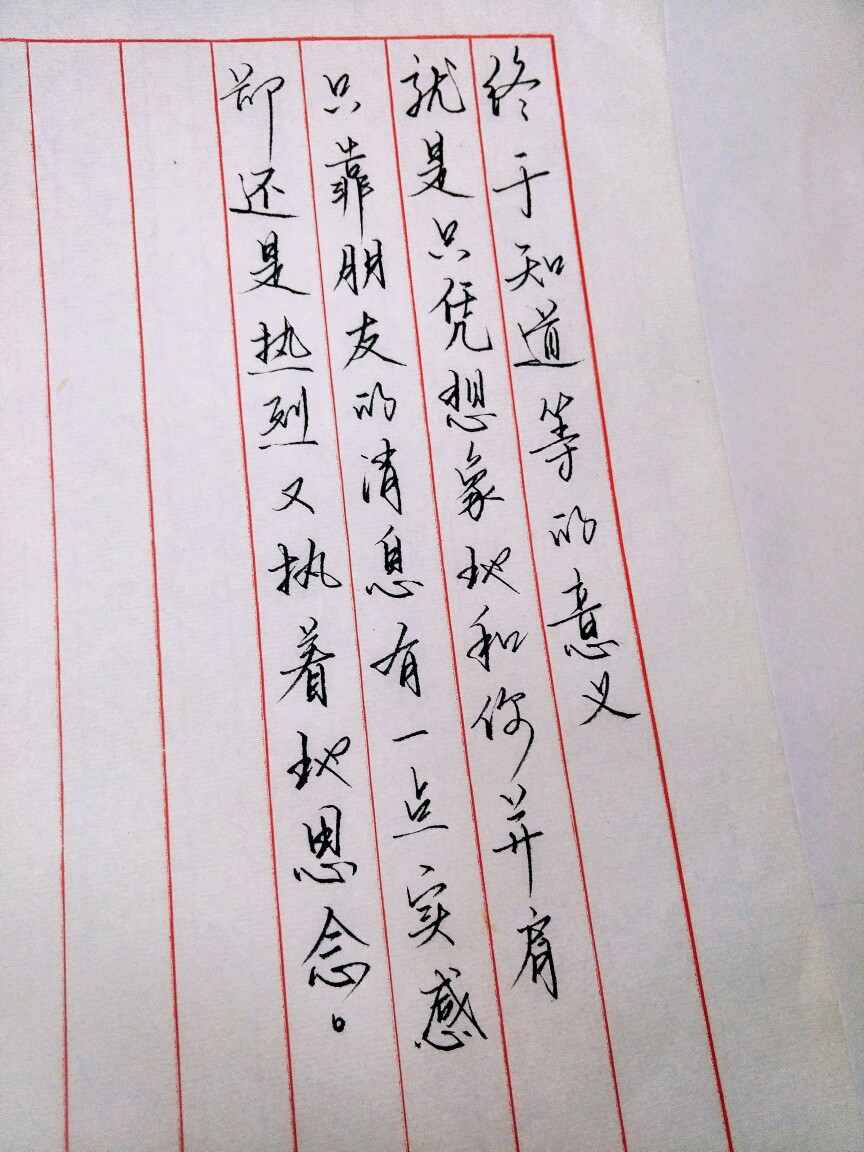 终于知道等的意义
就是只凭想象地和你并肩
只靠朋友的消息有一点实感
却还是热烈又执着地思念。